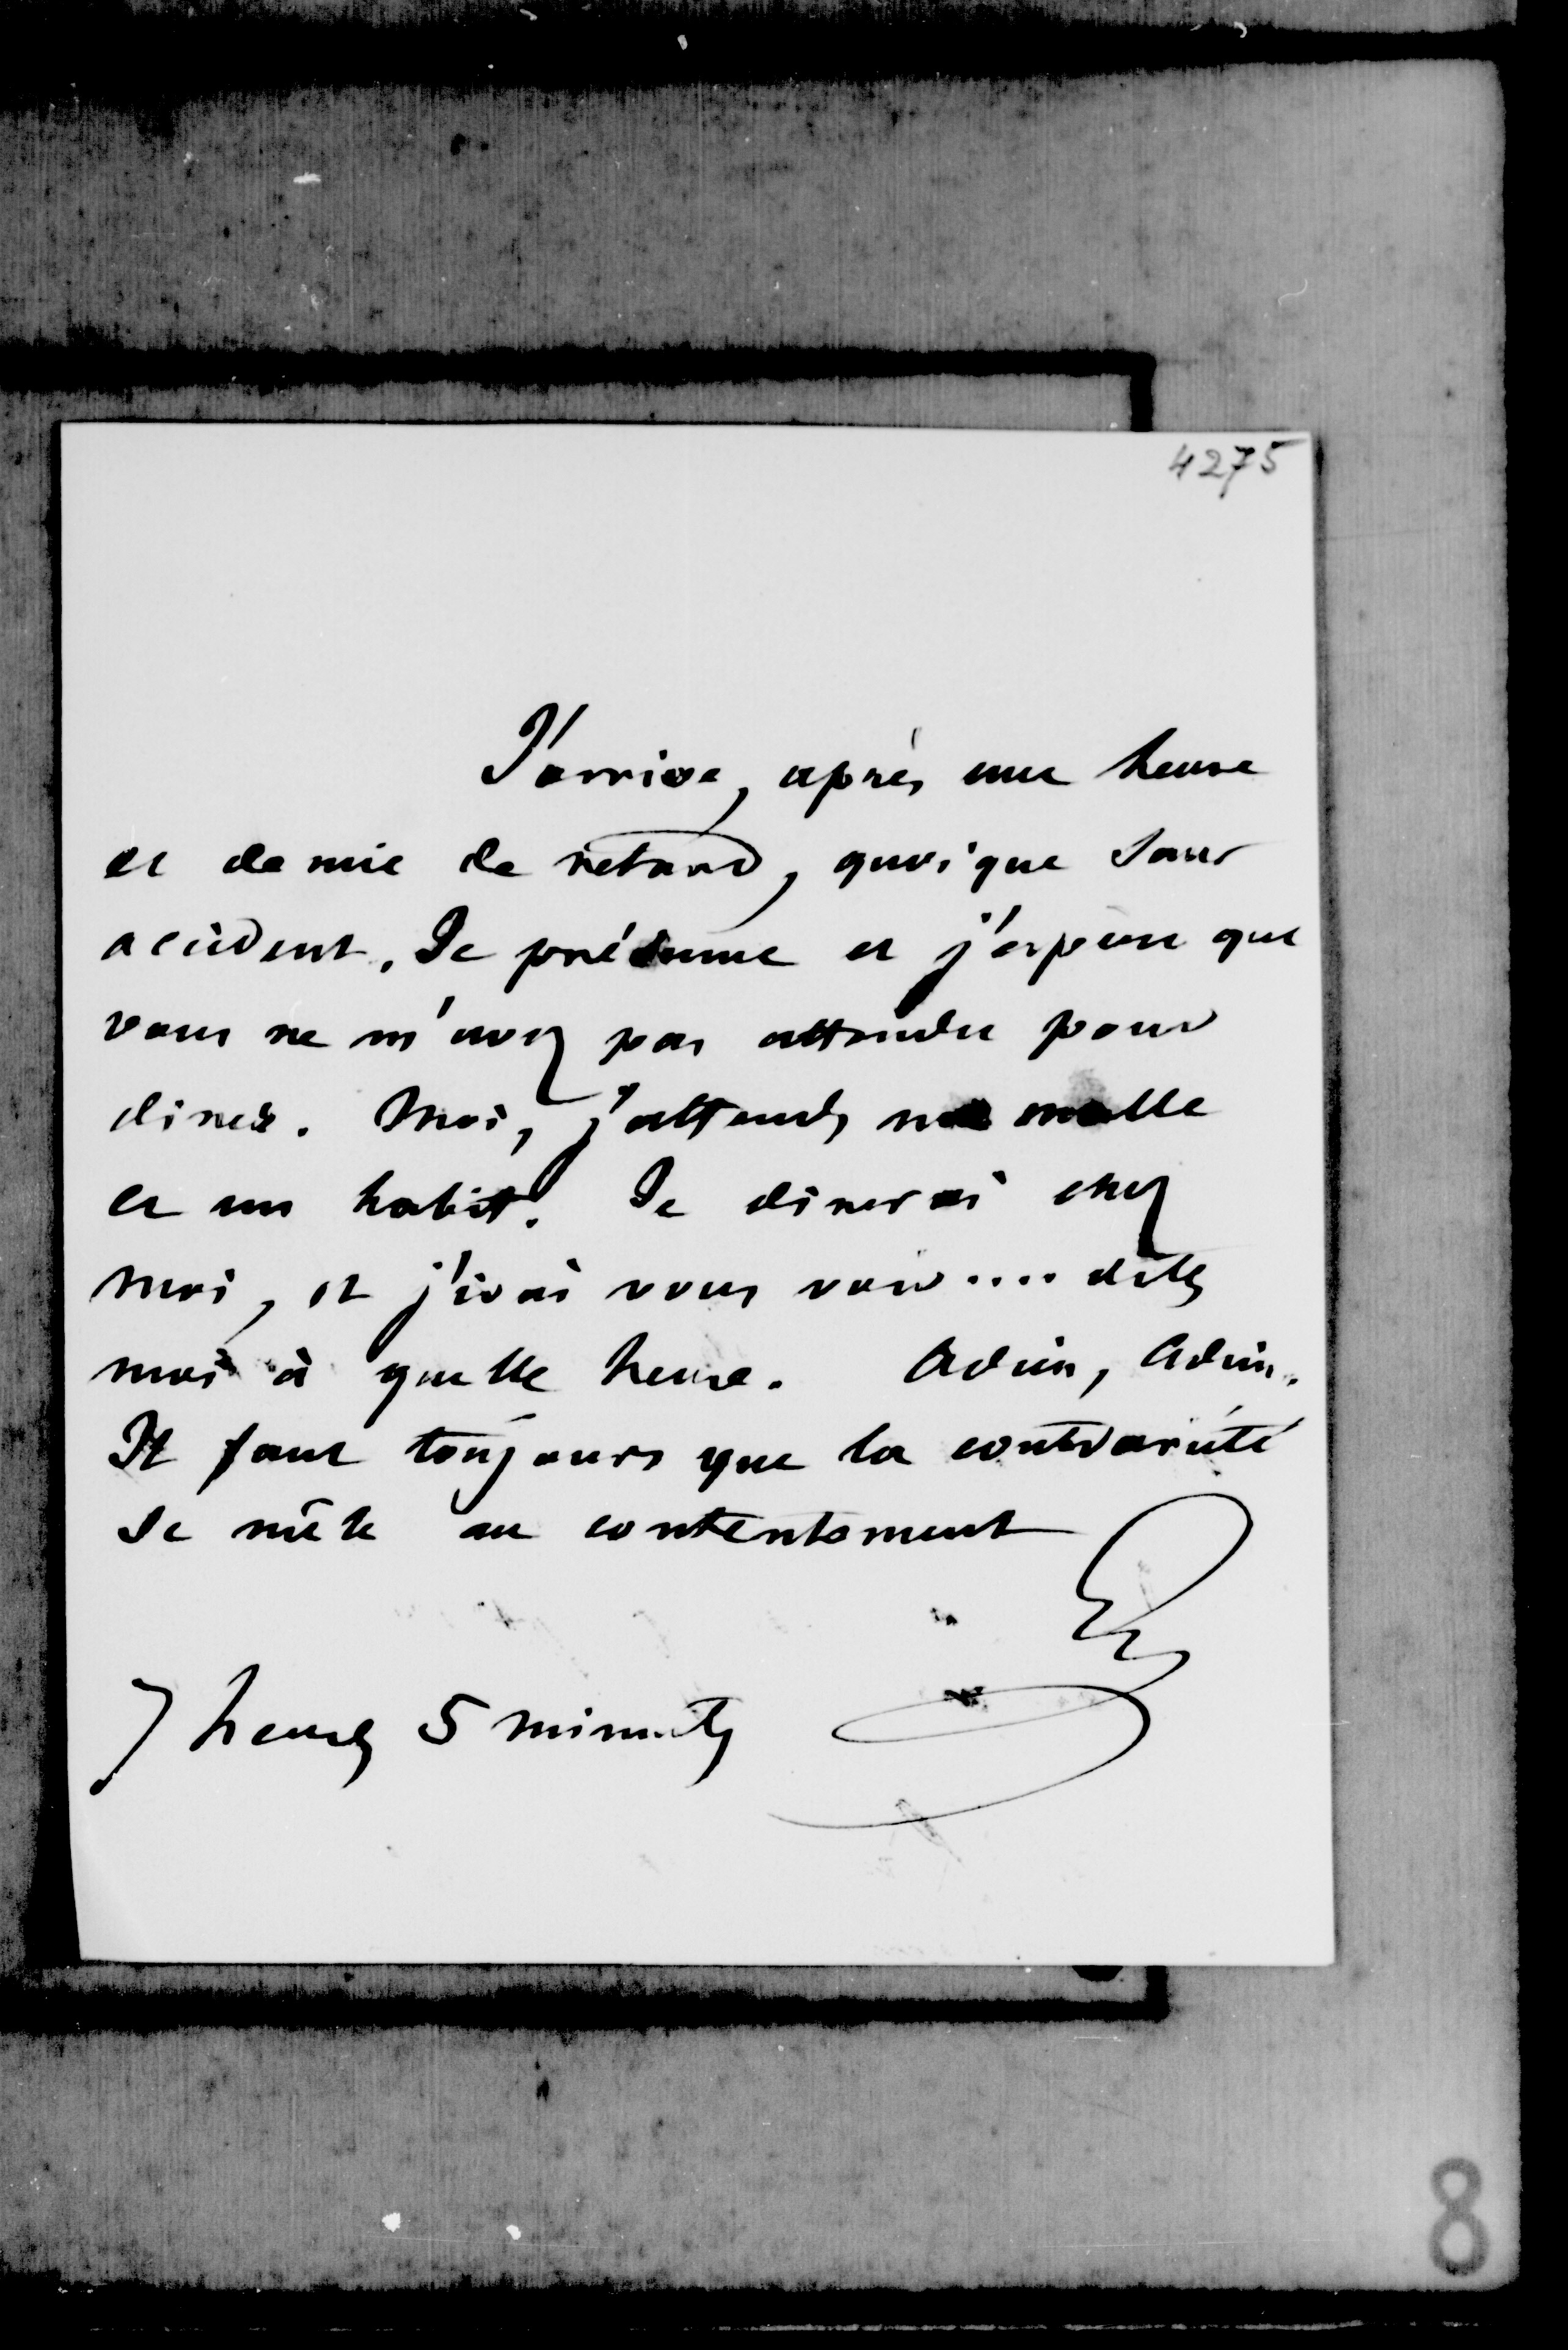 4275
J'arrive, après une heure
et demie de retard, quoique sans
accident. Je présume et j'espère que
vous ne m'avez pas attendu pour
diner. Moi, j'attends ma malle
et un habit. Je dinerai chez
moi, et j'irai vous voir.... dites
moi à quelle heure. Adieu, Adieu.
Il faut toujours que la contrariété
se mêle au contentement
7 heures 5 minutes
8